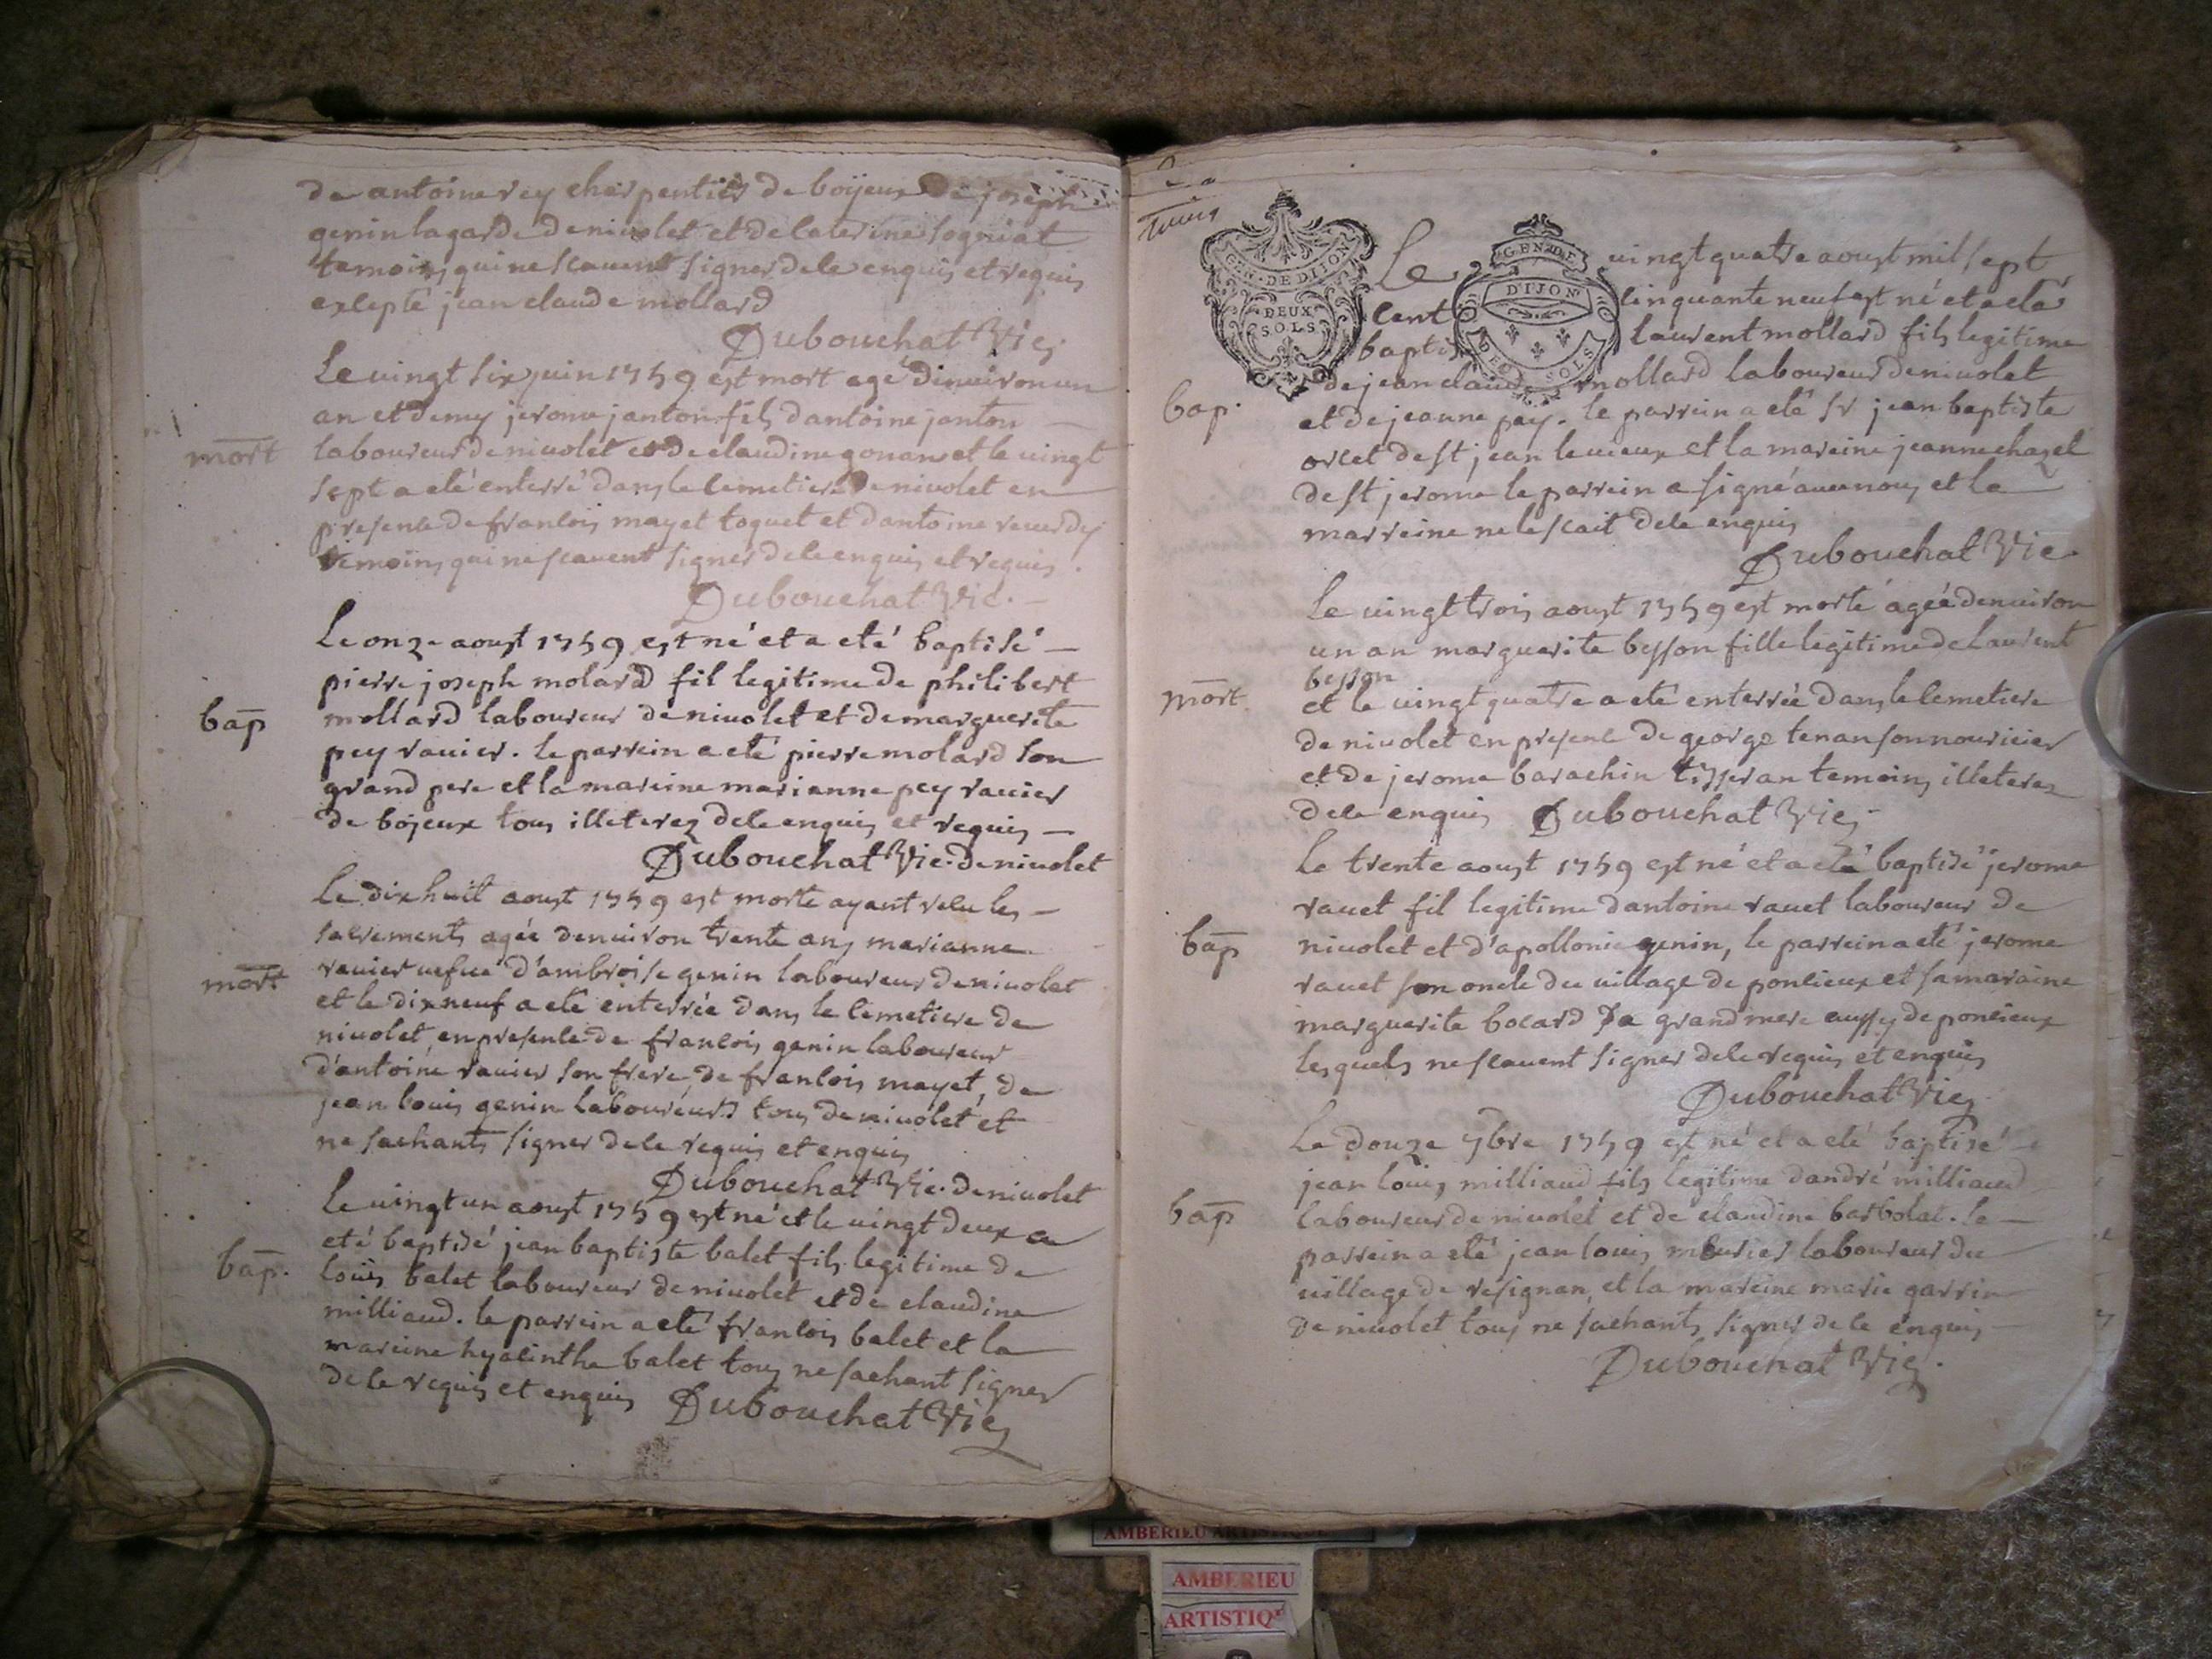 de antoine rey cherpentier de boÿeux de joseph
genin lagarde de nivolet et de caterine sogniat
temoins qui ne scavent signer de ce enquis et requis
excepté jean claude mollard
Dubouchat Vic
mort
Le vingt six juin 1759 est mort agé d'environ un
an et demy jerome janton fils d'antoine janton
laboureur de nivolet et de claudine gonan et le vingt
sept a eté enterré dans le cemetiere de nivolet en
presence de francois mayet toquet et d'antoine reverdy
temoins qui ne scavent signer de ce enquis et requis.
Dubouchat Vic.
bap
Le onze aoust 1759 est né et a eté baptisé
pierre joseph molard fil legitime de philibert
mollard laboureur de nivolet et de marguerite
pey ravier. le parrein a eté pierre molard son
grand pere et la mareine marianne pey ravier
de bojeux tous illeterez de ce enquis et requis
Dubouchat Vic. de nivolet
mort
Le dixhuit aoust 1759 est morte ayant recu les
sacrements agée denviron trente ans marianne
ravier vefve d'ambroise genin laboureur de nivolet
et le dix neuf a eté enterrée dans le cemetiere de
nivolet, en presence de francois genin laboureur
d'antoine ravier son frere, de francois mayet, de
jean louis genin laboureurs tous de nivolet et
ne sachants signer de ce requis et enquis
Dubouchat Vic. de nivolet
bap.
Le vingt un aoust 1759 est né et le vingt deux a
eté baptisé jean baptiste balet fils legitime de
loüis balet laboureur de nivolet et de claudine
milliaud. le parrein a eté francois balet et la
mareine hyacinthe balet tous ne sachant signer
de ce requis et enquis Dubouchat Vic
GEN. DE DIJON
DEUX
SOLS
GEN. DE
DIJON
DEUX SOLS
bap.
Le vingt quatre aoust mil sept
cent cinquante neuf est né et a eté
baptisé laurent mollard fils legitime
de jean claude mollard laboureur de nivolet
et de jeanne pey. le parrein a eté sr jean baptiste
orcet de st jean le vieux et la mareine jeanne chazel
de st jerome le parrein a signé avec nous et la
marreine ne le scait de ce enquis
Dubouchat Vic
mort
Le vingt trois aoust 1759 est morte agée denviron
un an marguerite besson fille legitime de Laurent
besson
et le vingt quatre a eté enterrée dans le cemetiere
de nivolet en presence de george tenan son nouricier
et de jerome barachin tisseran temoins illeterez
de ce enquis Dubouchat Vic
bap
Le trente aoust 1759 est né et a eté baptisé jerome
ravet fil legitime dantoine ravet laboureur de
nivolet et d'apollonie genin, le parrein a eté jerome
ravet son oncle du village de poncieux et sa maraine
marguerite bocard sa grand mere aussy de poncieux
lesquels ne scavent signer de ce requis et enquis
Dubouchat Vic
bap
Le douze 7bre 1759 est né et a eté baptisé
jean louis milliaud fils legitime dandré milliaud
laboureur de nivolet et de claudine barbolat. le
parrein a eté jean louis murier laboureur du
village de resignan, et la mareine marie garrin
de nivolet tous ne sachants signer de ce enquis
Dubouchat Vic.
AMBERIEU ARTISTIQUE
AMBERIEU
ARTISTIQ